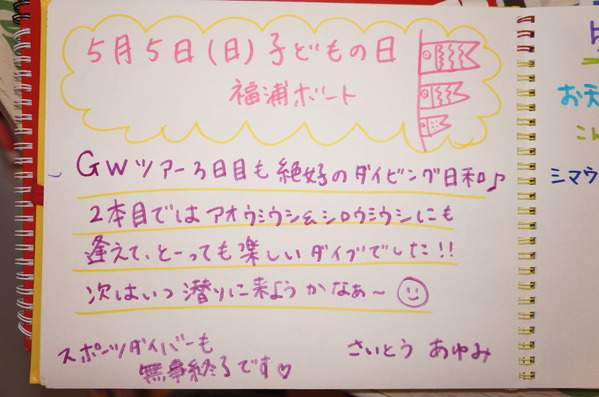 5月5日(日)子どもの日
福浦ボート
GWツアー3日目も絶好のダイビング日和♪
2本目ではアオウミウシ&シロウミウシにも
逢えて、とーっても楽しいダイブでした!!
次はいつ潜りに来ようかなぁ~
スポーツダイバーも
無事終了です♡
さいとう あゆみ
お天
こん
シマウ